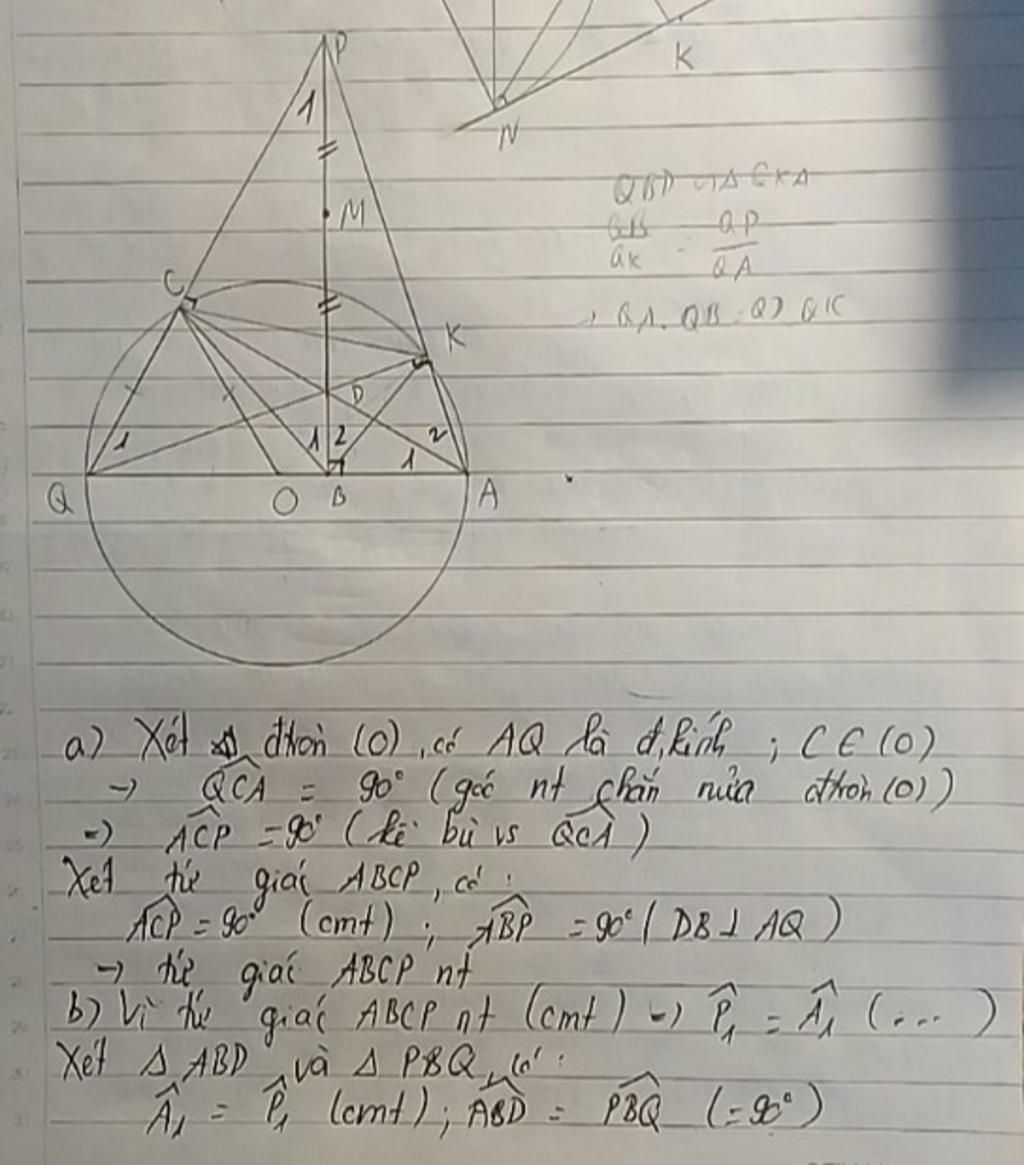 P
1
M
C
K
D
1
1 2
2
1
Q
O
B
A
N
K
QBD ∽ Δ QKA
QB/QK = QD/QA
→ QA. QB = QD QK
a) Xét đtròn (O), có AQ là đ,kính ; C ∈ (O)
→ \widehat{QCA} = 90° (góc nt chắn nửa đtròn (O))
→ \widehat{ACP} = 90° (kề bù vs \widehat{QCA})
Xét tứ giác ABCP, có :
\widehat{ACP} = 90° (cmt) ; \widehat{ABP} = 90° ( DB ⊥ AQ )
→ tứ giác ABCP nt
b) Vì tứ giác ABCP nt (cmt) → \widehat{P}₁ = \widehat{A}₁ (...)
Xét Δ ABD và Δ PBQ, có :
\widehat{A}₁ = \widehat{P}₁ (cmt) ; \widehat{ABD} = \widehat{PBQ} (=90°)